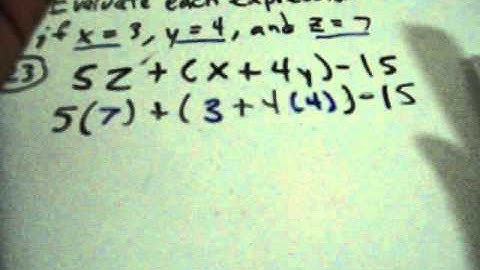 Evaluate each
if x = 3, y = 4, and z = 7
23) 5z + (x + 4y) - 15
5(7) + (3 + 4(4)) - 15